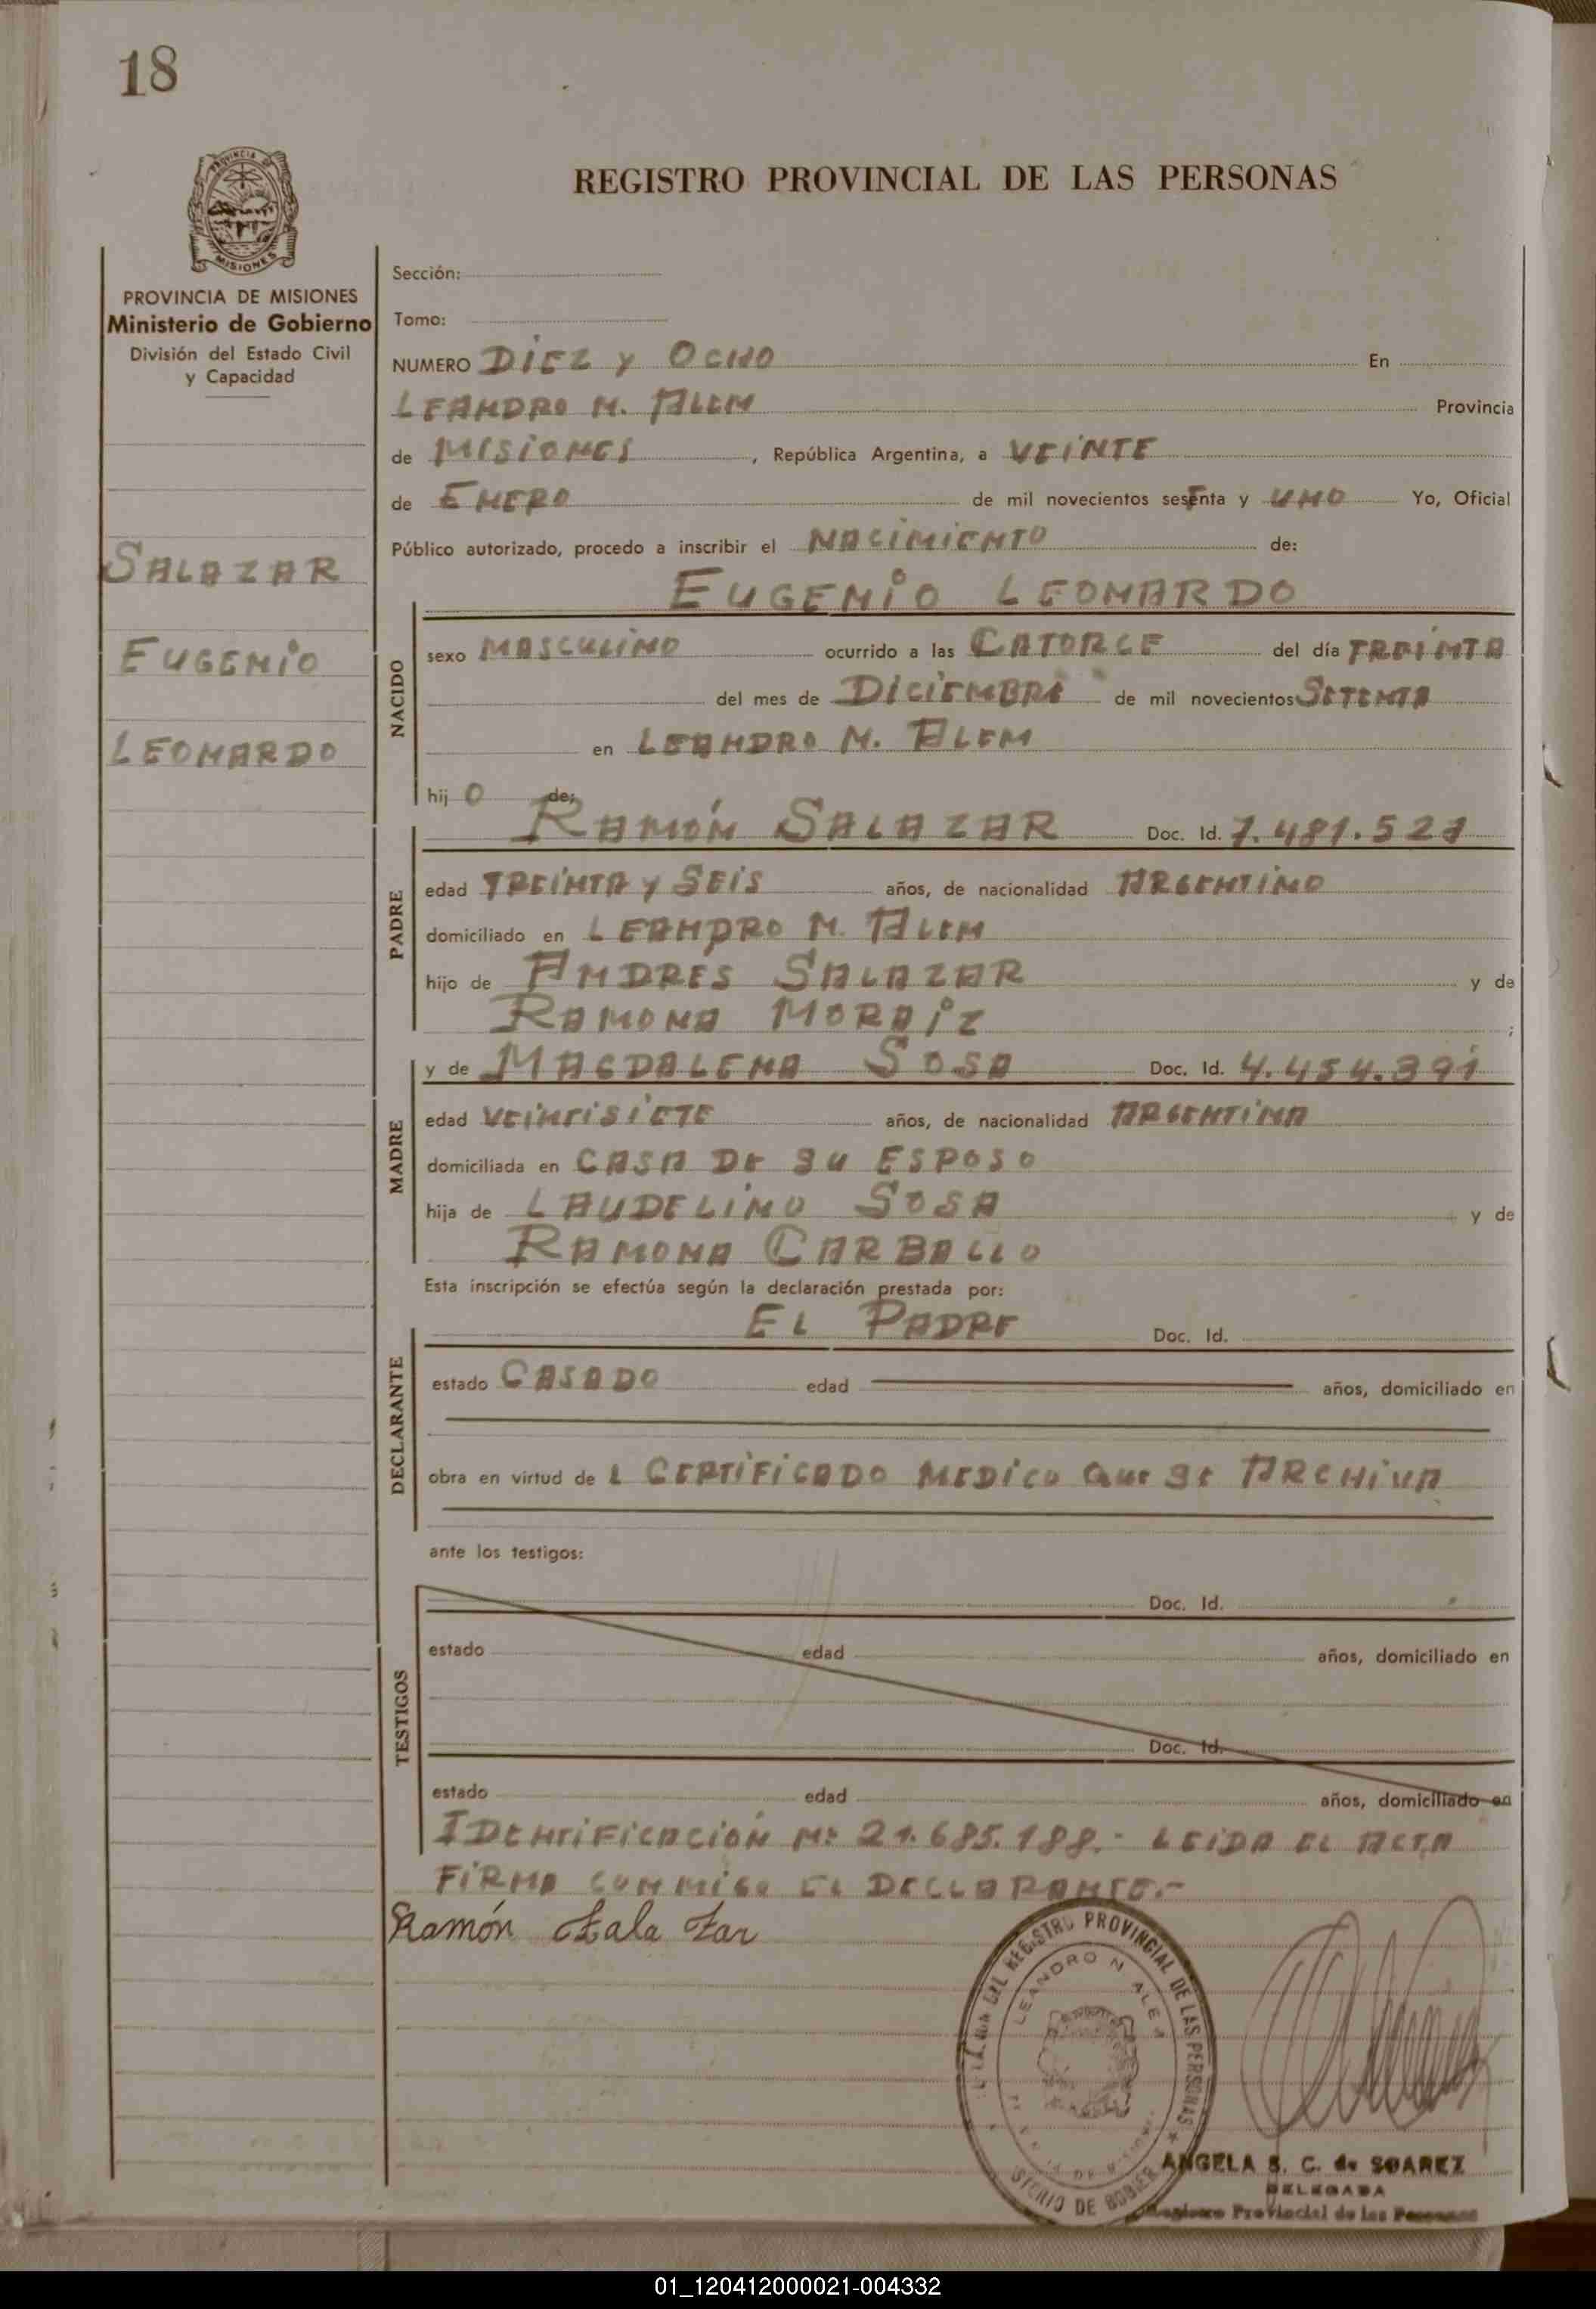 18
PROVINCIA DE
MISIONES
REGISTRO PROVINCIAL DE LAS PERSONAS
PROVINCIA DE MISIONES
Ministerio de Gobierno
División del Estado Civil
y Capacidad
SALAZAR
EUGENIO
LEONARDO
Sección:
Tomo:
NUMERO DIEZ y OCHO En
LEANDRO N. ALEM Provincia
de MISIONES, República Argentina, a VEINTE
de ENERO de mil novecientos setenta y UNO Yo, Oficial
Público autorizado, procedo a inscribir el NACIMIENTO de:
EUGENIO LEONARDO
NACIDO
sexo MASCULINO ocurrido a las CATORCE del día TREINTA
del mes de DICIEMBRE de mil novecientos SETENTA
en LEANDRO N. ALEM
hij O de:
RAMÓN SALAZAR Doc. Id. 7.481.527
PADRE
edad TREINTA y SEIS años, de nacionalidad ARGENTINO
domiciliado en LEANDRO N. ALEM
hijo de ANDRES SALAZAR y de
RAMONA MORAIZ ;
y de MAGDALENA SOSA Doc. Id. 4.454.391
MADRE
edad VEINTISIETE años, de nacionalidad ARGENTINA
domiciliada en CASA DE SU ESPOSO
hija de LAUDELINO SOSA y de
RAMONA CARBALLO
Esta inscripción se efectúa según la declaración prestada por:
EL PADRE Doc. Id.
DECLARANTE
estado CASADO edad años, domiciliado en
obra en virtud de L CERTIFICADO MEDICO QUE SE ARCHIVA
ante los testigos:
Doc. Id.
TESTIGOS
estado edad años, domiciliado en
Doc. Id.
estado edad años, domiciliado en
IDENTIFICACIÓN Nº 21.685.188.- LEIDA EL ACTA
FIRMA CONMIGO EL DECLARANTE.-
Ramón Zala Zar
DEL REGISTRO PROVINCIAL DE LAS PERSONAS
LEANDRO N ALEM
DE
ANGELA S. C. de SOAREZ
DELEGADA
Registro Provincial de las Personas
01_120412000021-004332